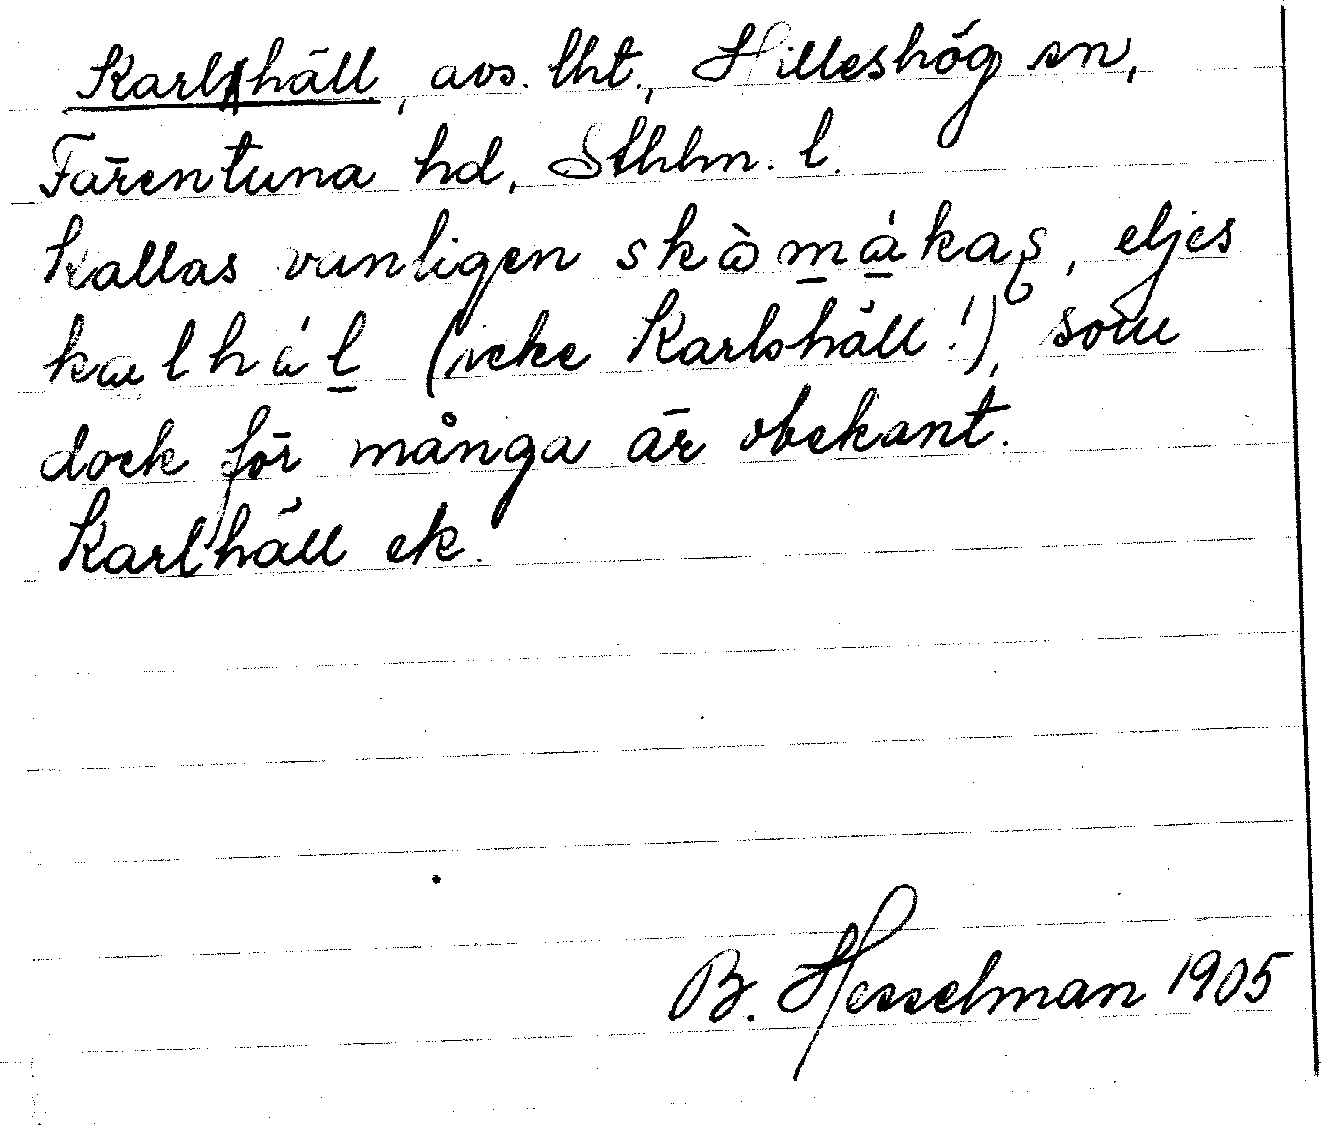 Karlhäll, avs. lht., Hilleshög sn,
Färentuna hd, Sthlm. l.
Kallas vanligen skòmákaş, eljes
kalhál (icke Karlshäll!), som
dock för många är obekant.
Karlhäll ek.
B. Hesselman 1905